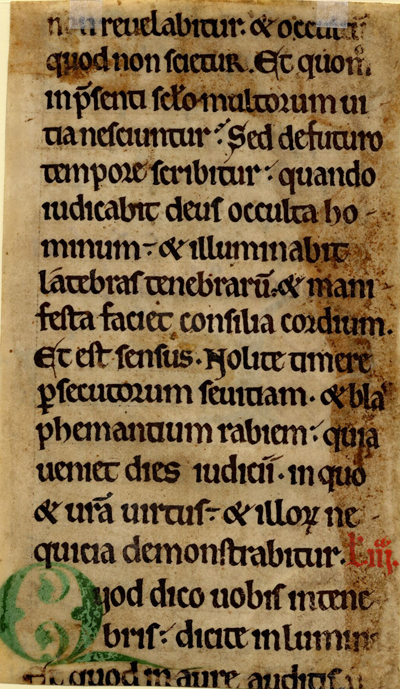 non revelabitur. & occultū
quod non scietur. Et quom̄
in p̄senti sclo multorum ui
tia nesciuntur. Sed de futuro
tempore scribitur. quando
iudicabit deus occulta ho-
minum. & illuminabit
latebras tenebrarū. & mani
festa faciet consilia cordium.
Et est sensus. Nolite timere
ꝑsecutorum seuitiam. & blas
phemantium rabiem. quia
ueniet dies iudicii. in quo
& ur̄a uirtus. & illoꝝ ne
quicia demonstrabitur. L iiii.
Quod dico uobis in tene
bris. dicite in lumine
Et quod in aure auditis